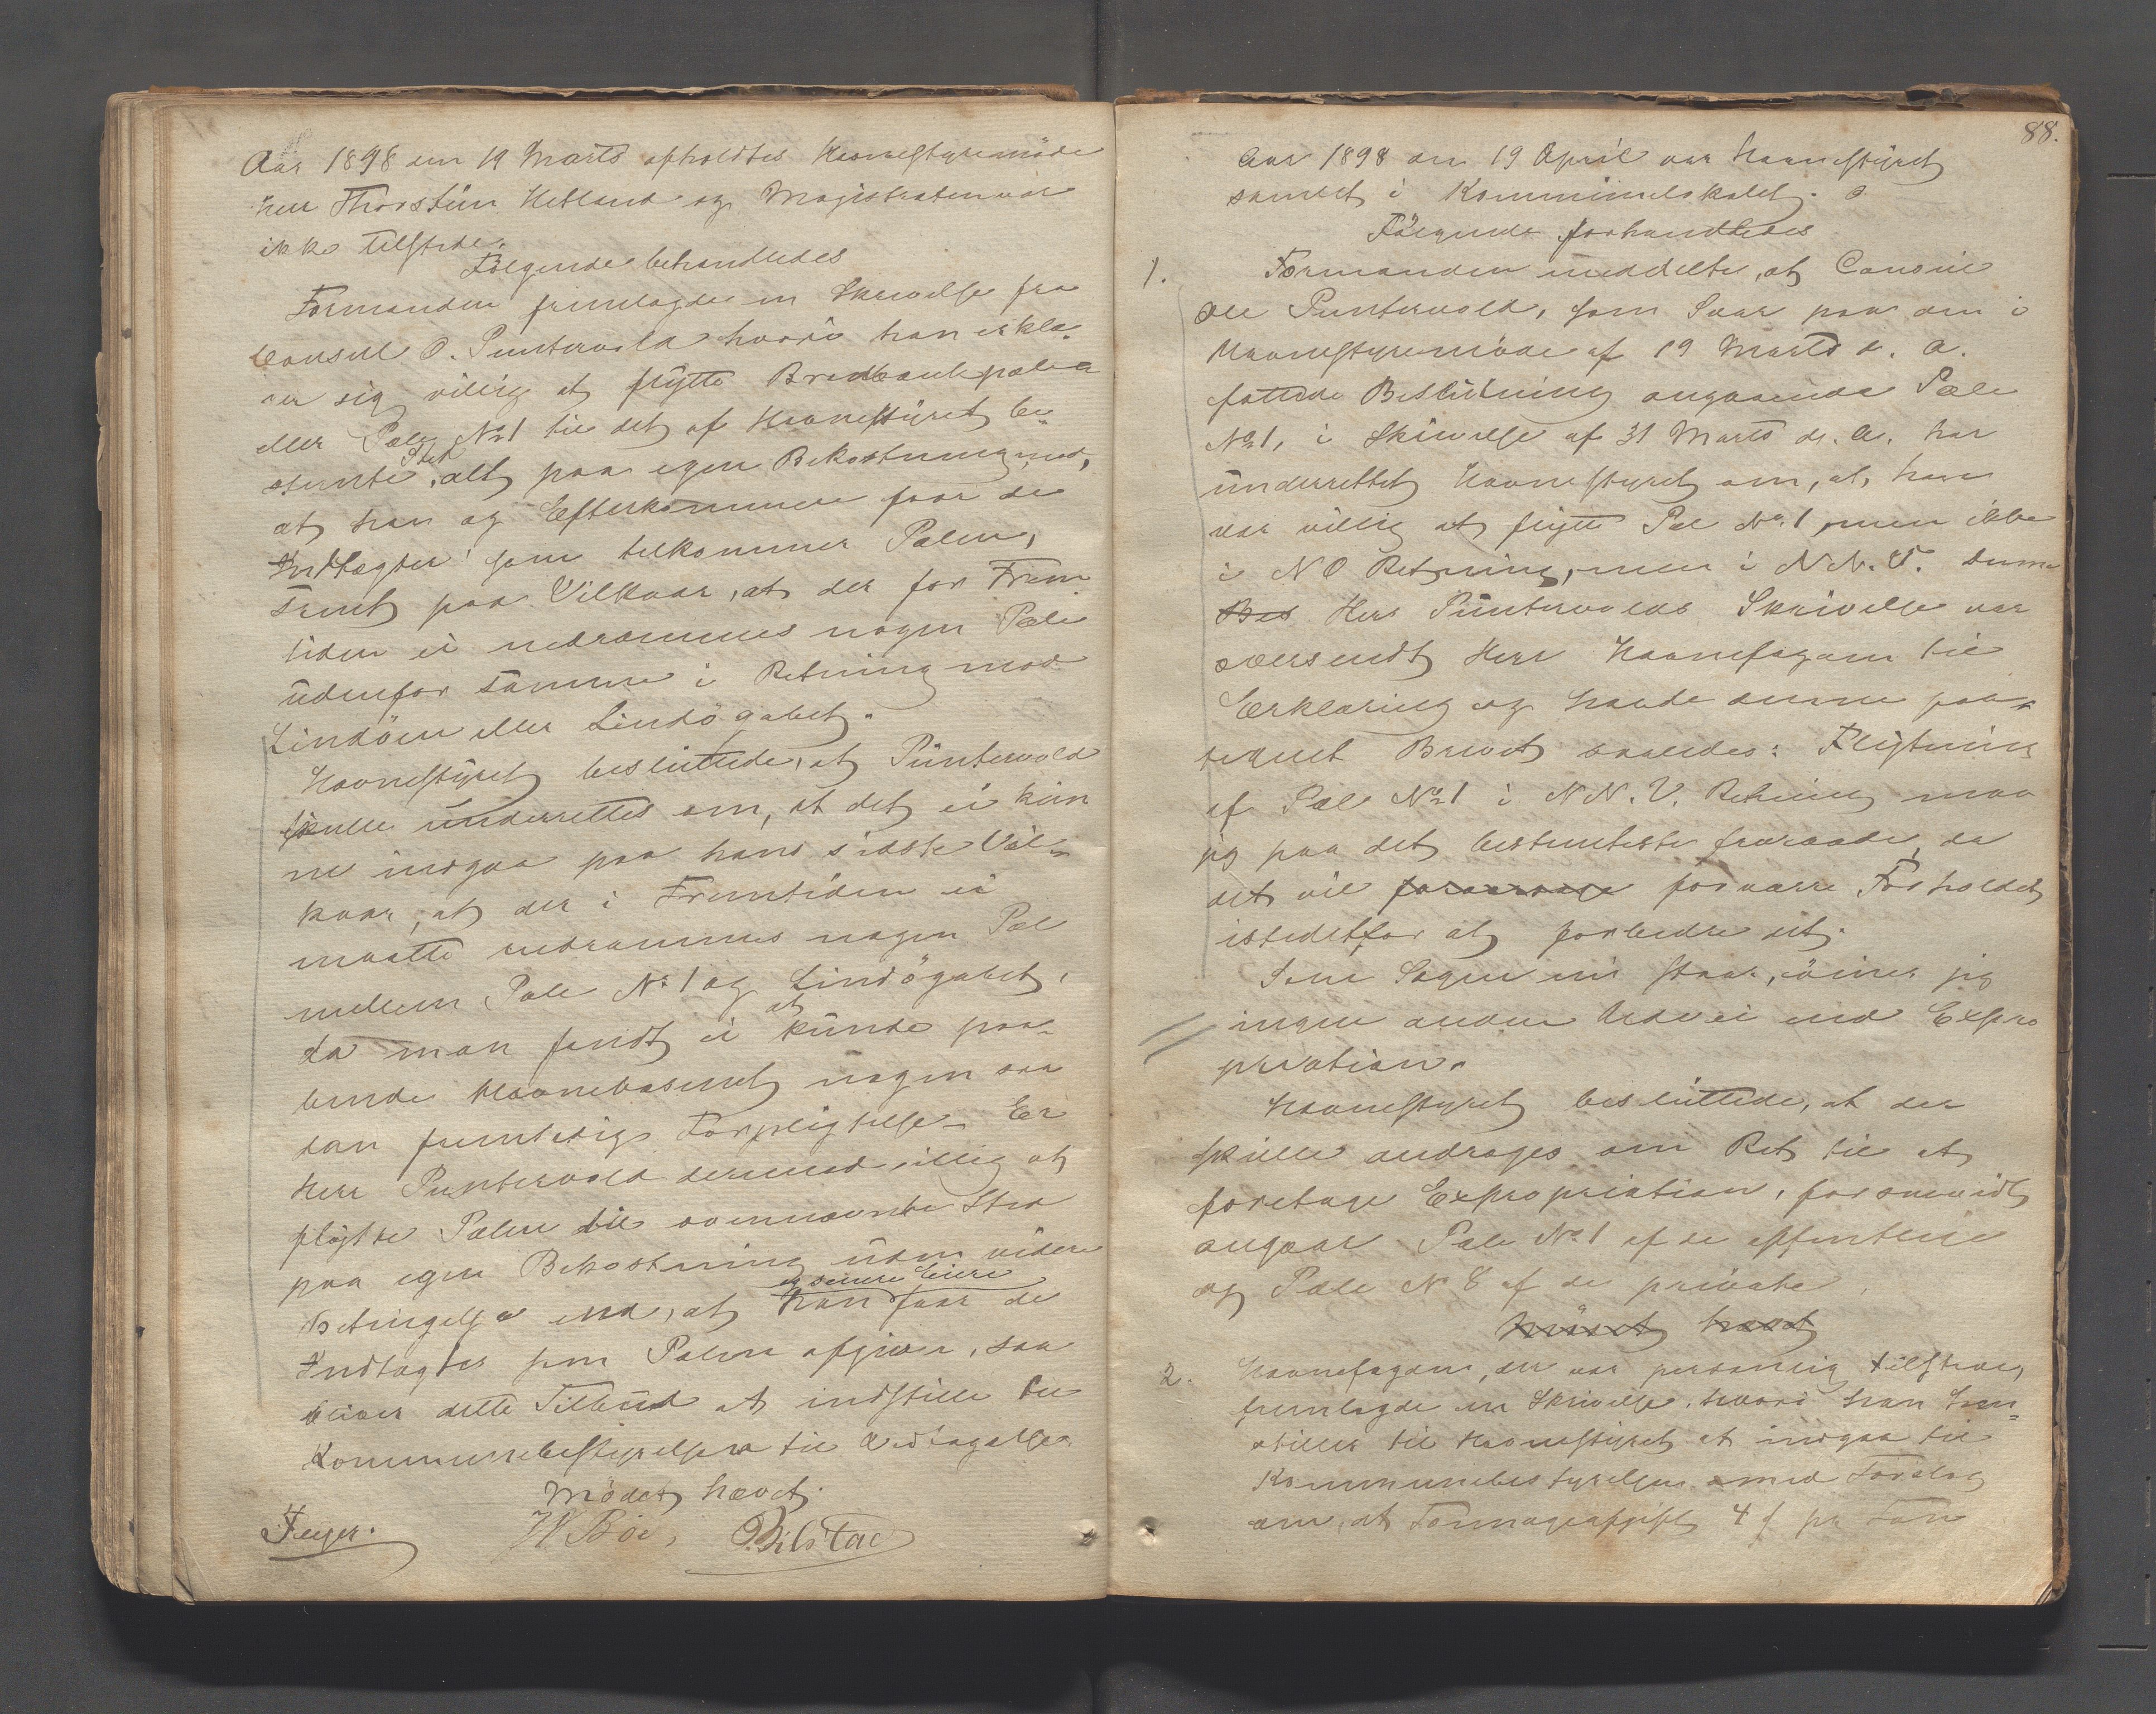 Aar 1898 den 19 Marts afholdtes Havnestyremöde
Herr Thorstein Hetland og Magistraten var
ikke tilstede.
Fölgende behandledes
Formanden fremlagde en Skrivelse fra
Consul O. Puntervold hvori han erklæ¬
rer sig villig at flytte Bradbænkpælen
eller Pæle No 1 til det af Havnestyret be¬
stemte Sted, alt paa egen Bekostning, mod,
at han og Efterkommere faar de
Indtægter som tilkommer Pælen,
samt paa Vilkaar, at der for Frem
tiden ei nedrammes nogen Pæle
udenfor samme i Retning mod
Lindöen eller Lindögabet.
Havnestyret besluttede, at Puntervold
skulle underrettes om, at det ei kun
ne indgaa paa hans sidste Vil¬
kaar, at der i Fremtiden ei
maatte nedrammes nogen Pæl
mellem Pæle No 1 og Lindögabet,
da man fandt ei at kunde paa¬
binde Havnevæsenet nogen saa
dan fremtidig Forpligtelse. Er
Herr Puntervold dermod villig at
flytte Pælen til ovennævnte Sted
paa egen Bekostning uden videre
Betingelse end, at han og senere Eiere faar de
Indtægter som Pælen afgiver, saa
bliver dette Tilbud at indstille til
Kommunebestyrelsen til Vedtagelse.
Mödet hævet.
Feyer. H Böe, Bilstad
88.
Aar 1898 den 19 April var Havnestyret
samlet i Kommunelokalet.
Fölgende forhandledes
1. Formanden meddelte, at Consul
Ole Puntervold, som Svar paa den i
Havnestyremöde af 19 Marts d. A.
fattede Beslutning angaaende Pæle
No 1, i Skrivelse af 31 Marts d. A. har
underrettet Havnestyret om, at han
var villig at flytte Pæl No. 1, men ikke
i NO Retning, men i N.N.V. Denne
Bes Herr Puntervolds Skrivelse var
oversendt Herr Havnefogden til
Erklæring og havde denne paa¬
tegnet Brevet saaledes: Flytning
af Pæle No 1 i N N. V. Retning maa
jeg paa det bestemteste fraraade, da
det vil forværre Forholdet
istedetfor at forbedre det.
Som Sagen nu staar, öiner jeg
ingen anden Udvei end Expro
priation.
Havnestyret besluttede, at der
skulle andrages om Ret til at
foretage Expropriation, forsaavidt
angaar Pæle No. 1 af de offentlige
og Pæle N 8 af de private.
Mödet hævet
2. Havnefogden, der var personlig tilstede,
fremlagde en Skrivelse, hvori han hen¬
stiller til Havnestyret at indgaa til
Kommunebestyrelsen med Forslag
om, at Tonnageafgift 4 f pr Ton